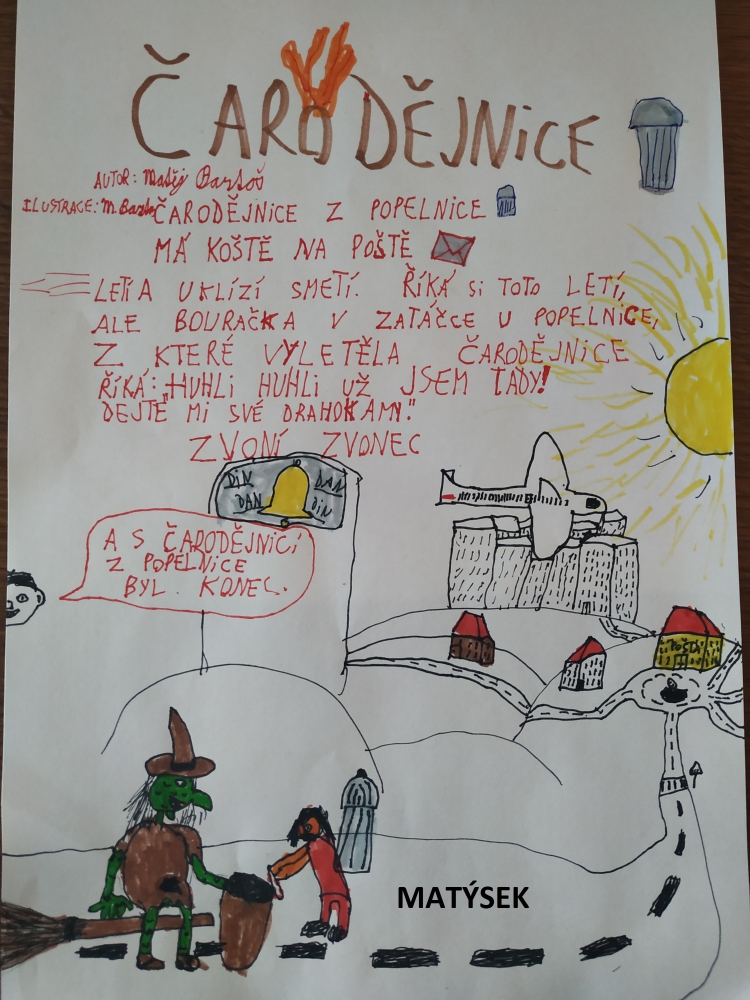 ČARODĚJNICE
AUTOR: Matěj Bartoš
ILUSTRACE: M. Bartoš
ČARODĚJNICE Z POPELNICE
MÁ KOŠTĚ NA POŠTĚ
LETÍ A UKLÍZÍ SMETÍ. ŘÍKÁ Si TOTO LETÍ,
ALE BOURAČKA V ZATÁČCE U POPELNICE,
Z KTERÉ VYLETĚLA ČARODĚJNICE
ŘÍKÁ: „HUHLI HUHLI UŽ JSEM TADY!
DEJTE MI SVÉ DRAHOKAMY."
ZVONÍ ZVONEC
DiN DAN
DAN DiN
A S ČARODĚJNICÍ
Z POPELNICE
BYL KONEC.
POŠTA
MATÝSEK